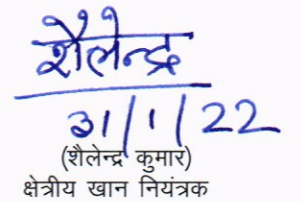 शैलेन्द्र
31/1/22
(शैलेन्द्र कुमार)
क्षेत्रीय खान नियंत्रक